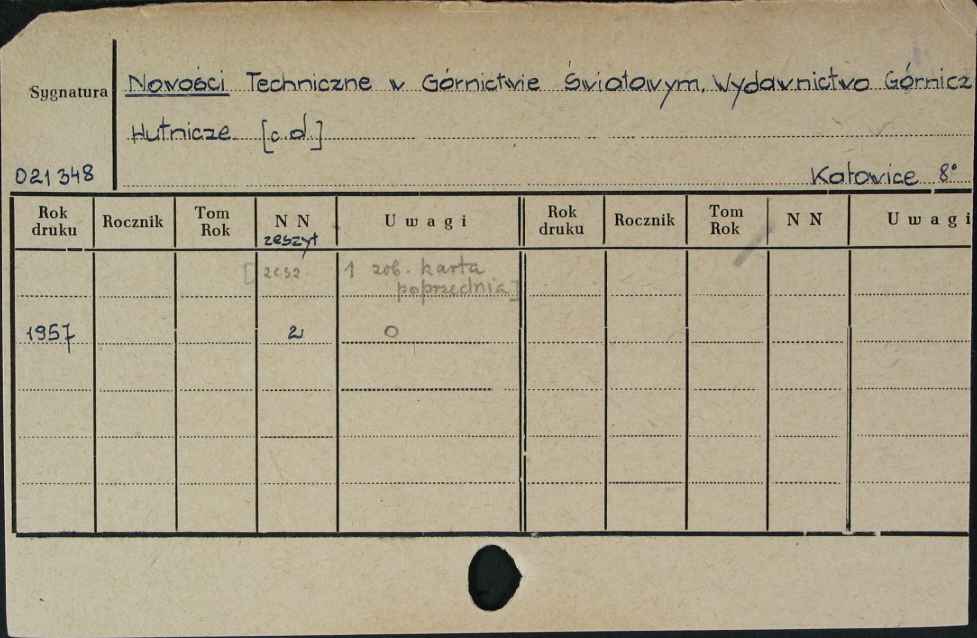 Sygnatura
Nowości Techniczne w Górnictwie Światowym. Wydawnictwo Górnicz
Hutnicze [c.d.]
021348
Katowice 8°
Rok druku Rocznik Tom Rok N N zeszyt U w a g i Rok druku Rocznik Tom Rok N N U w a g i
[zesz 1 zob. karta
poprzednia]
1957 2 O